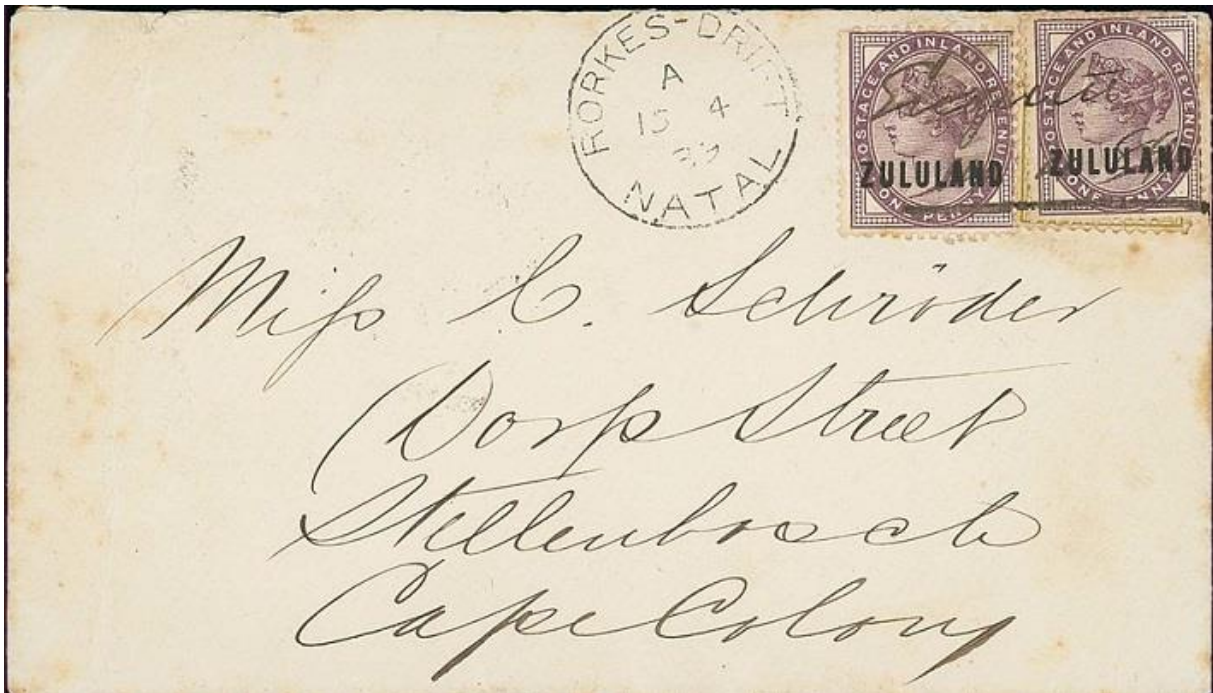 RORKES-DRIFT
A
15 4
NATAL
POSTAGE AND INLAND REVENUE
ZULULAND
ONE PENNY
POSTAGE AND INLAND REVENUE
ZULULAND
ONE PENNY
Miss C. Schröder
Dorp Street
Stellenbosch
Cape Colony